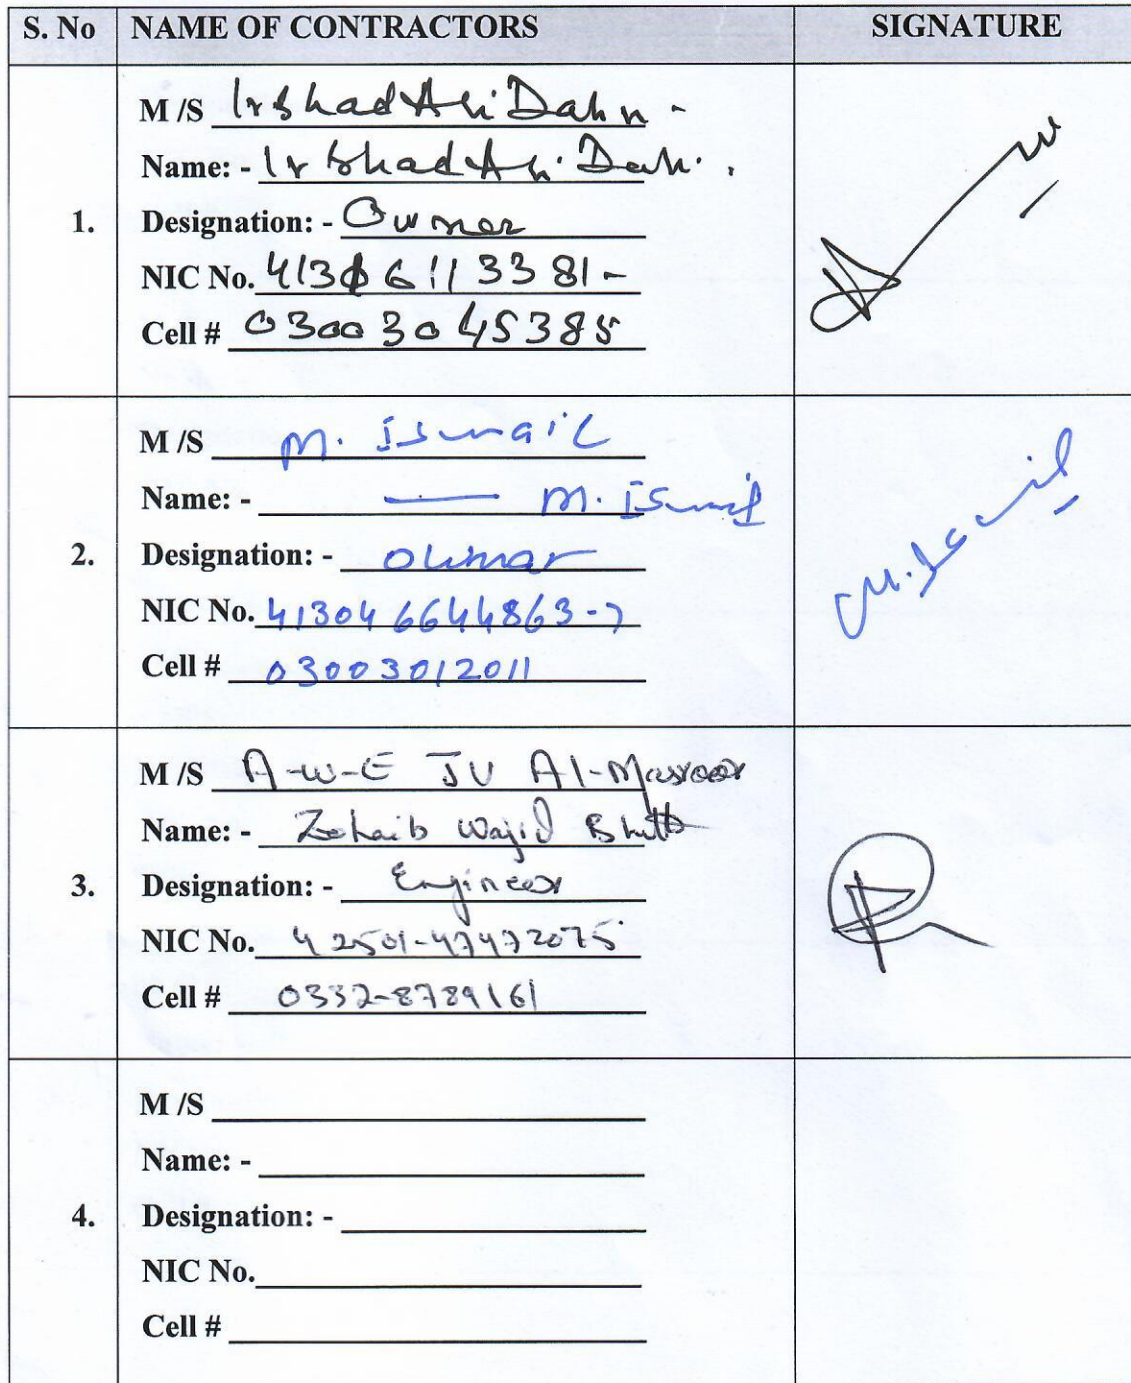 S. No NAME OF CONTRACTORS SIGNATURE
M /S Irshad Ali Dahri -
Name: - Irshad Ali Dahri.
1. Designation: - Owner
NIC No. 41306113381-
Cell # 03003045385
M /S M. Ismail
Name: - — M. Ismail
2. Designation: - Owner M. Ismail
NIC No. 413046644863-7
Cell # 03003012011
M /S A-W-E JV Al-Masroor
Name: - Zohaib Wajid Bhutto
3. Designation: - Engineer
NIC No. 42501-47472075
Cell # 0332-8789161
M /S
Name: -
4. Designation: -
NIC No.
Cell #